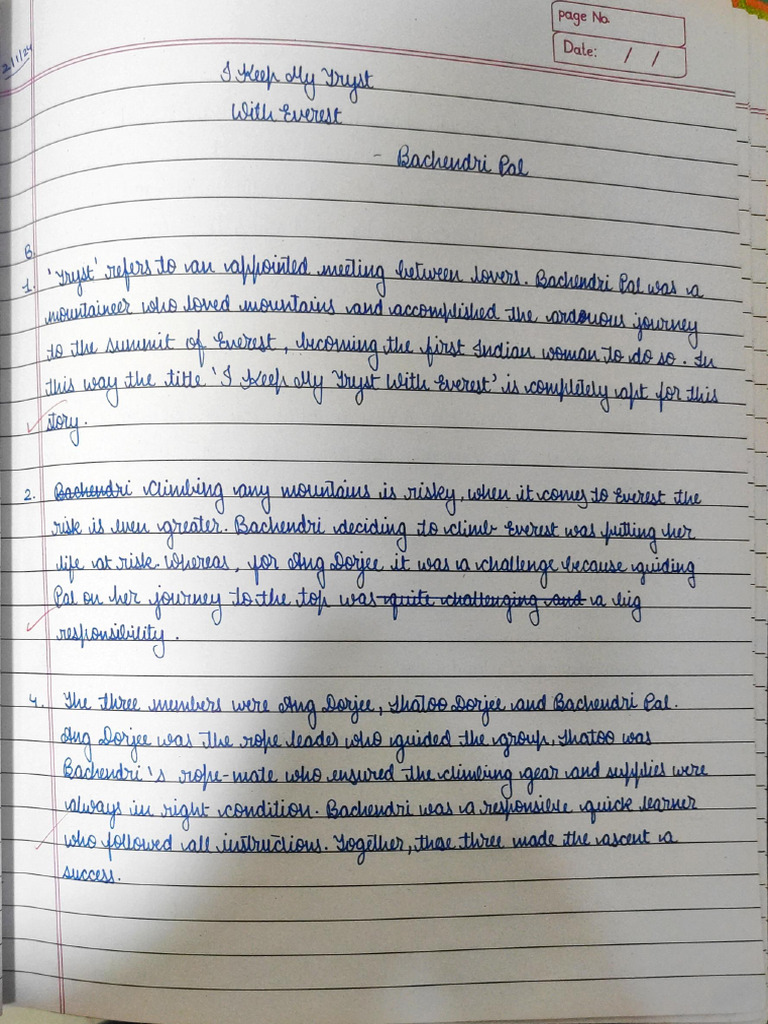 page No.
Date: / /
2/1/24
I Keep My Tryst
With Everest
- Bachendri Pal
B
1. 'Tryst' refers to an appointed meeting between lovers. Bachendri Pal was a
mountaineer who loved mountains and accomplished the arduous journey
to the summit of Everest, becoming the first Indian woman to do so. In
this way the title 'I Keep My Tryst With Everest' is completely apt for this
story.
2. Bachendri Climbing any mountains is risky, when it comes to Everest the
risk is even greater. Bachendri deciding to climb Everest was putting her
life at risk whereas, for Ang Dorjee it was a challenge because guiding
Pal on her journey to the top was quite challenging and a big
responsibility.
4. The three members were Ang Dorjee, Lhatoo Dorjee and Bachendri Pal.
Ang Dorjee was the rope leader who guided the group, Lhatoo was
Bachendri's rope-mate who ensured the climbing gear and supplies were
always in right condition. Bachendri was a responsible quick learner
who followed all instructions. Together, these three made the ascent a
success.